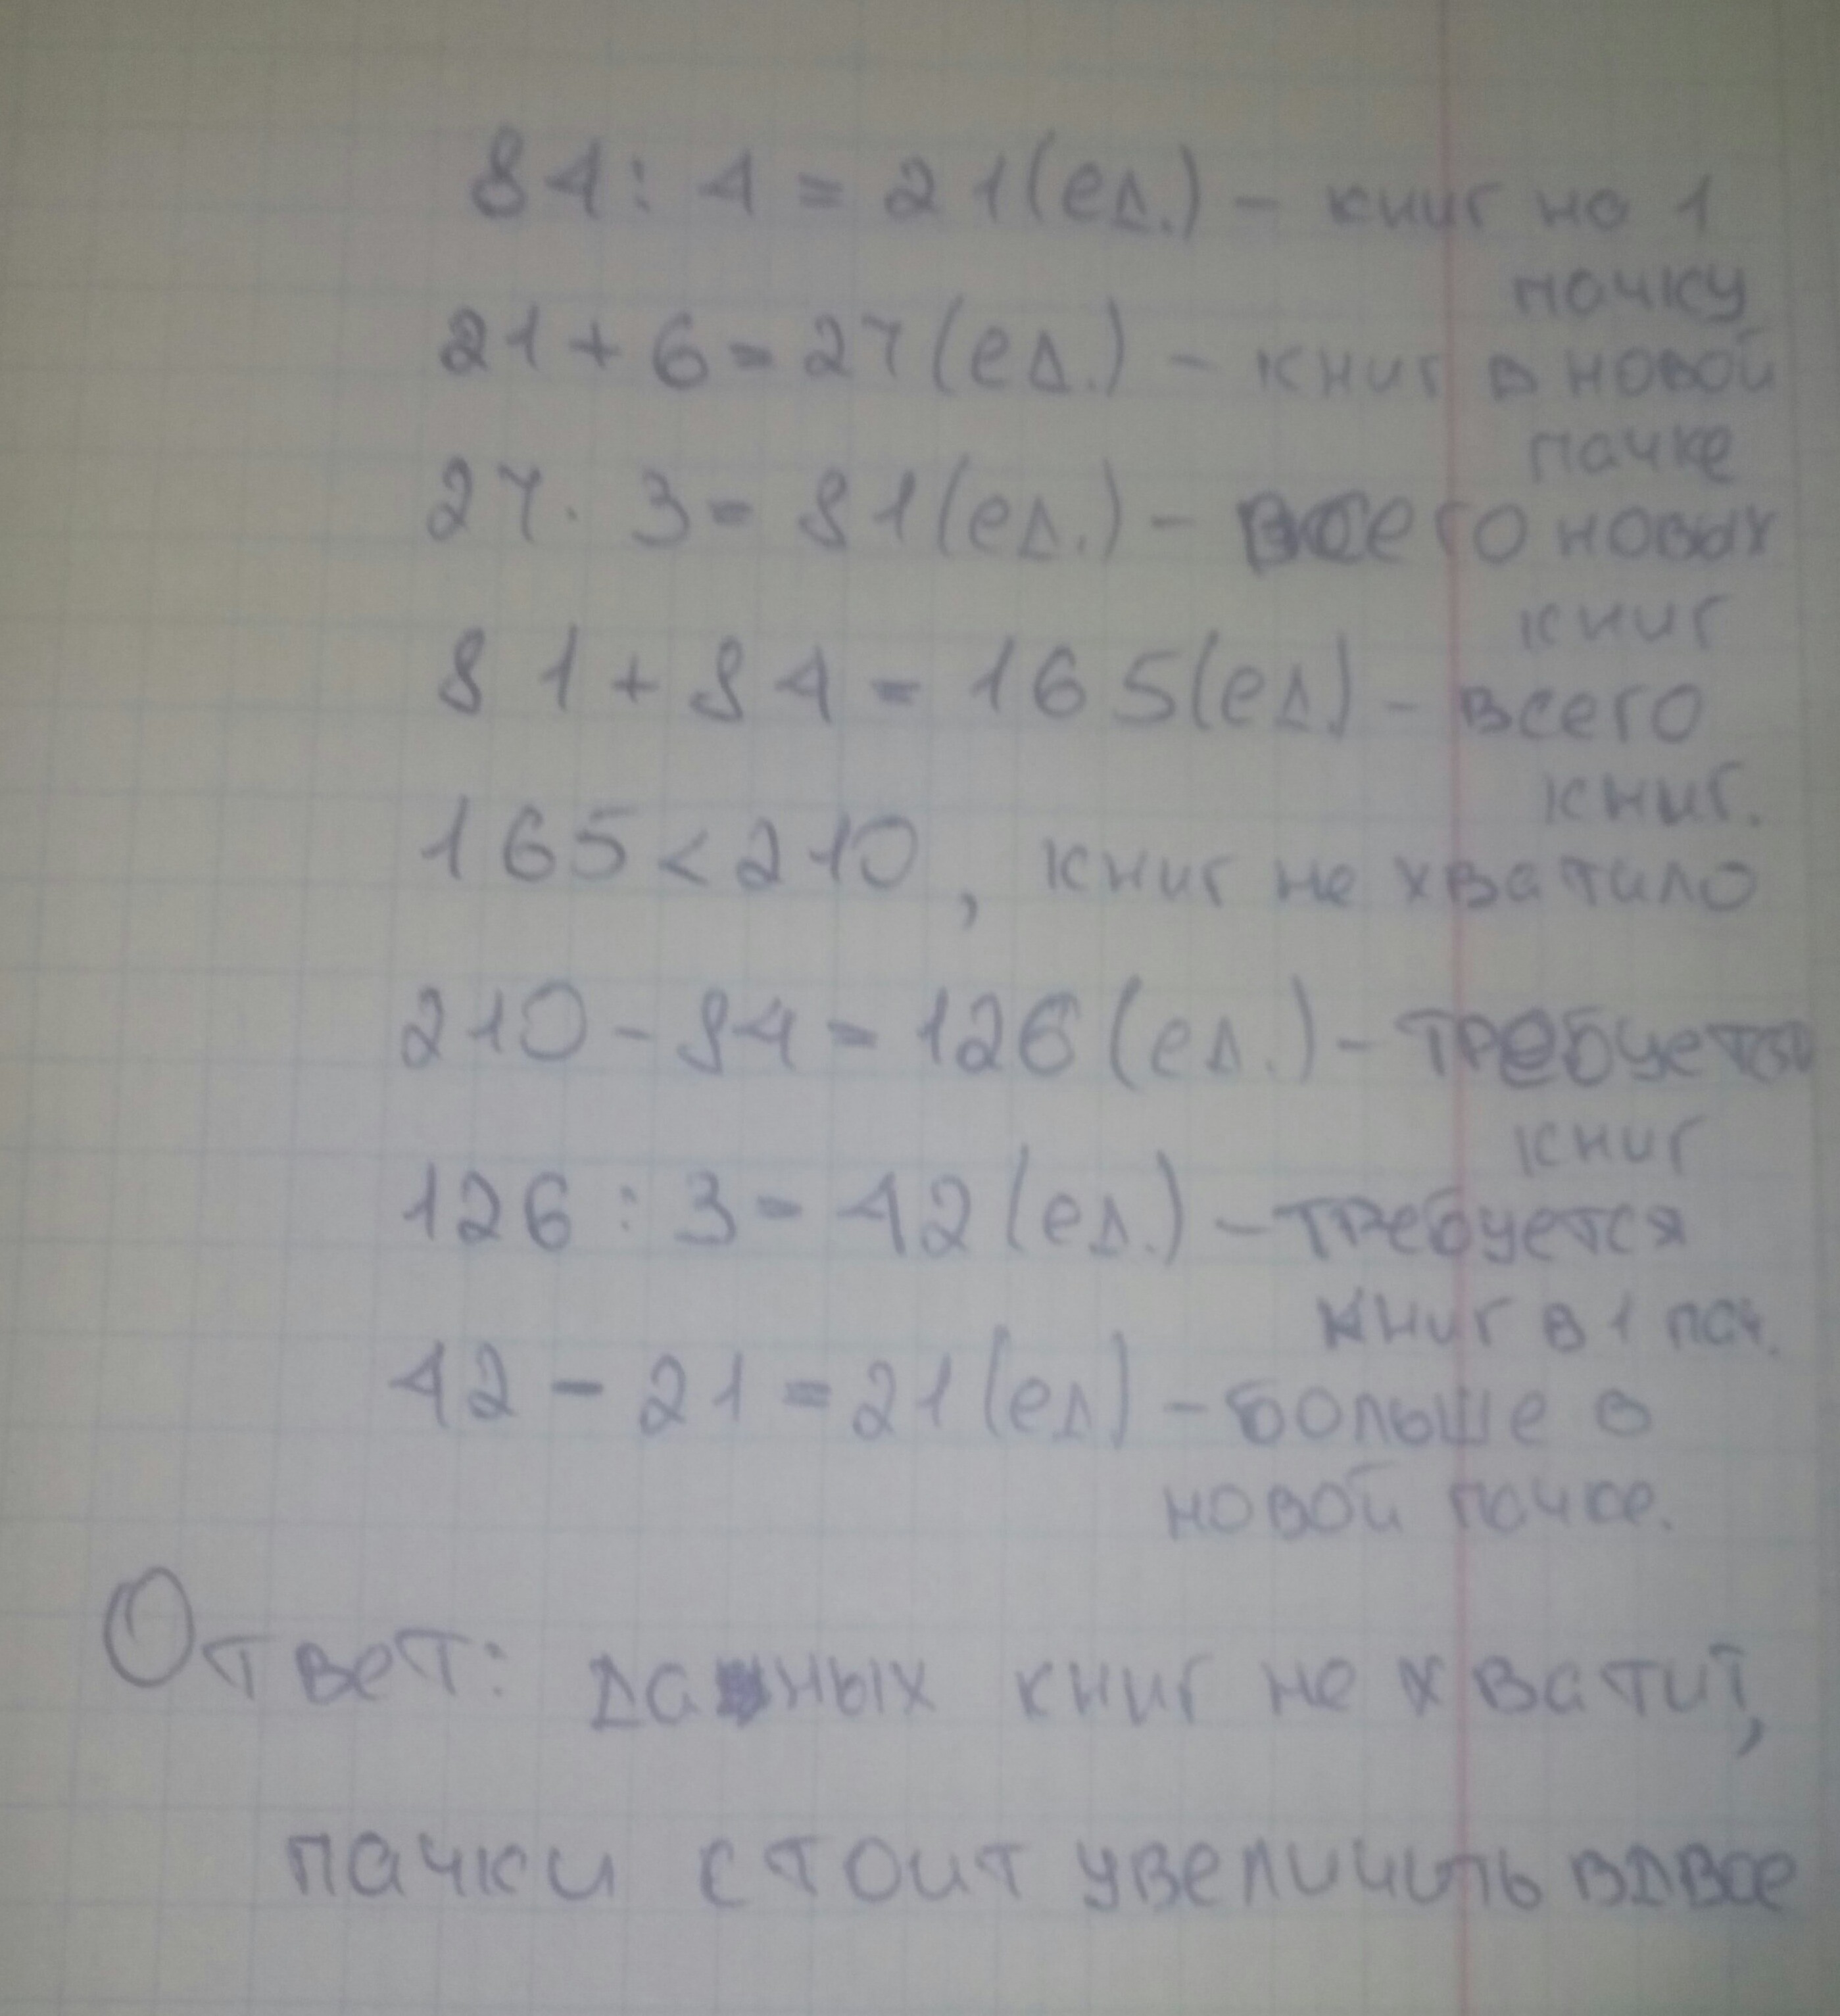 84 : 4 = 21 (ед.) - книг на 1
пачку
21 + 6 = 27 (ед.) - книг в новой
пачке
27 · 3 = 81 (ед.) - всего новых
книг
81 + 84 = 165 (ед) - всего
книг.
165 < 210, книг не хватило
210 - 84 = 126 (ед.) - требуется
книг
126 : 3 = 42 (ед.) - требуется
книг в 1 пач.
42 - 21 = 21 (ед) - больше в
новой пачке.
Ответ: данных книг не хватит,
пачки стоит увеличить вдвое